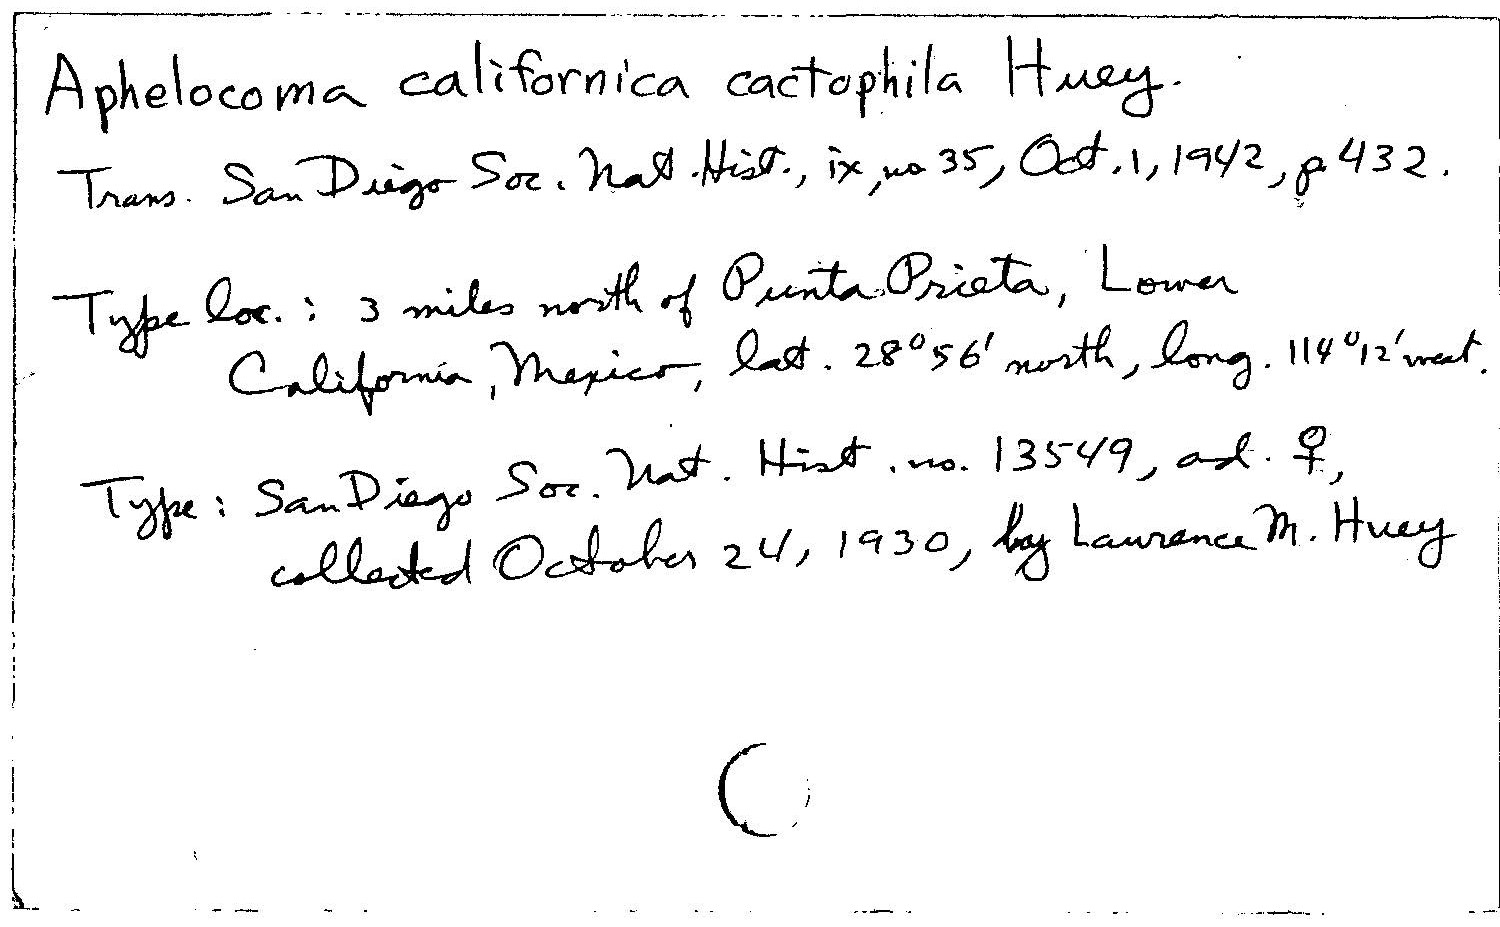 Aphelocoma californica cactophila Huey.
Trans. San Diego Soc. Nat. Hist., ix, no 35, Oct. 1, 1942, p. 432.
Type loc.: 3 miles north of Punta Prieta, Lower
California, Mexico, lat. 28°56' north, long. 114°12' west.
Type: San Diego Soc. Nat. Hist. no. 13549, ad. ♀,
collected October 24, 1930, by Laurence M. Huey